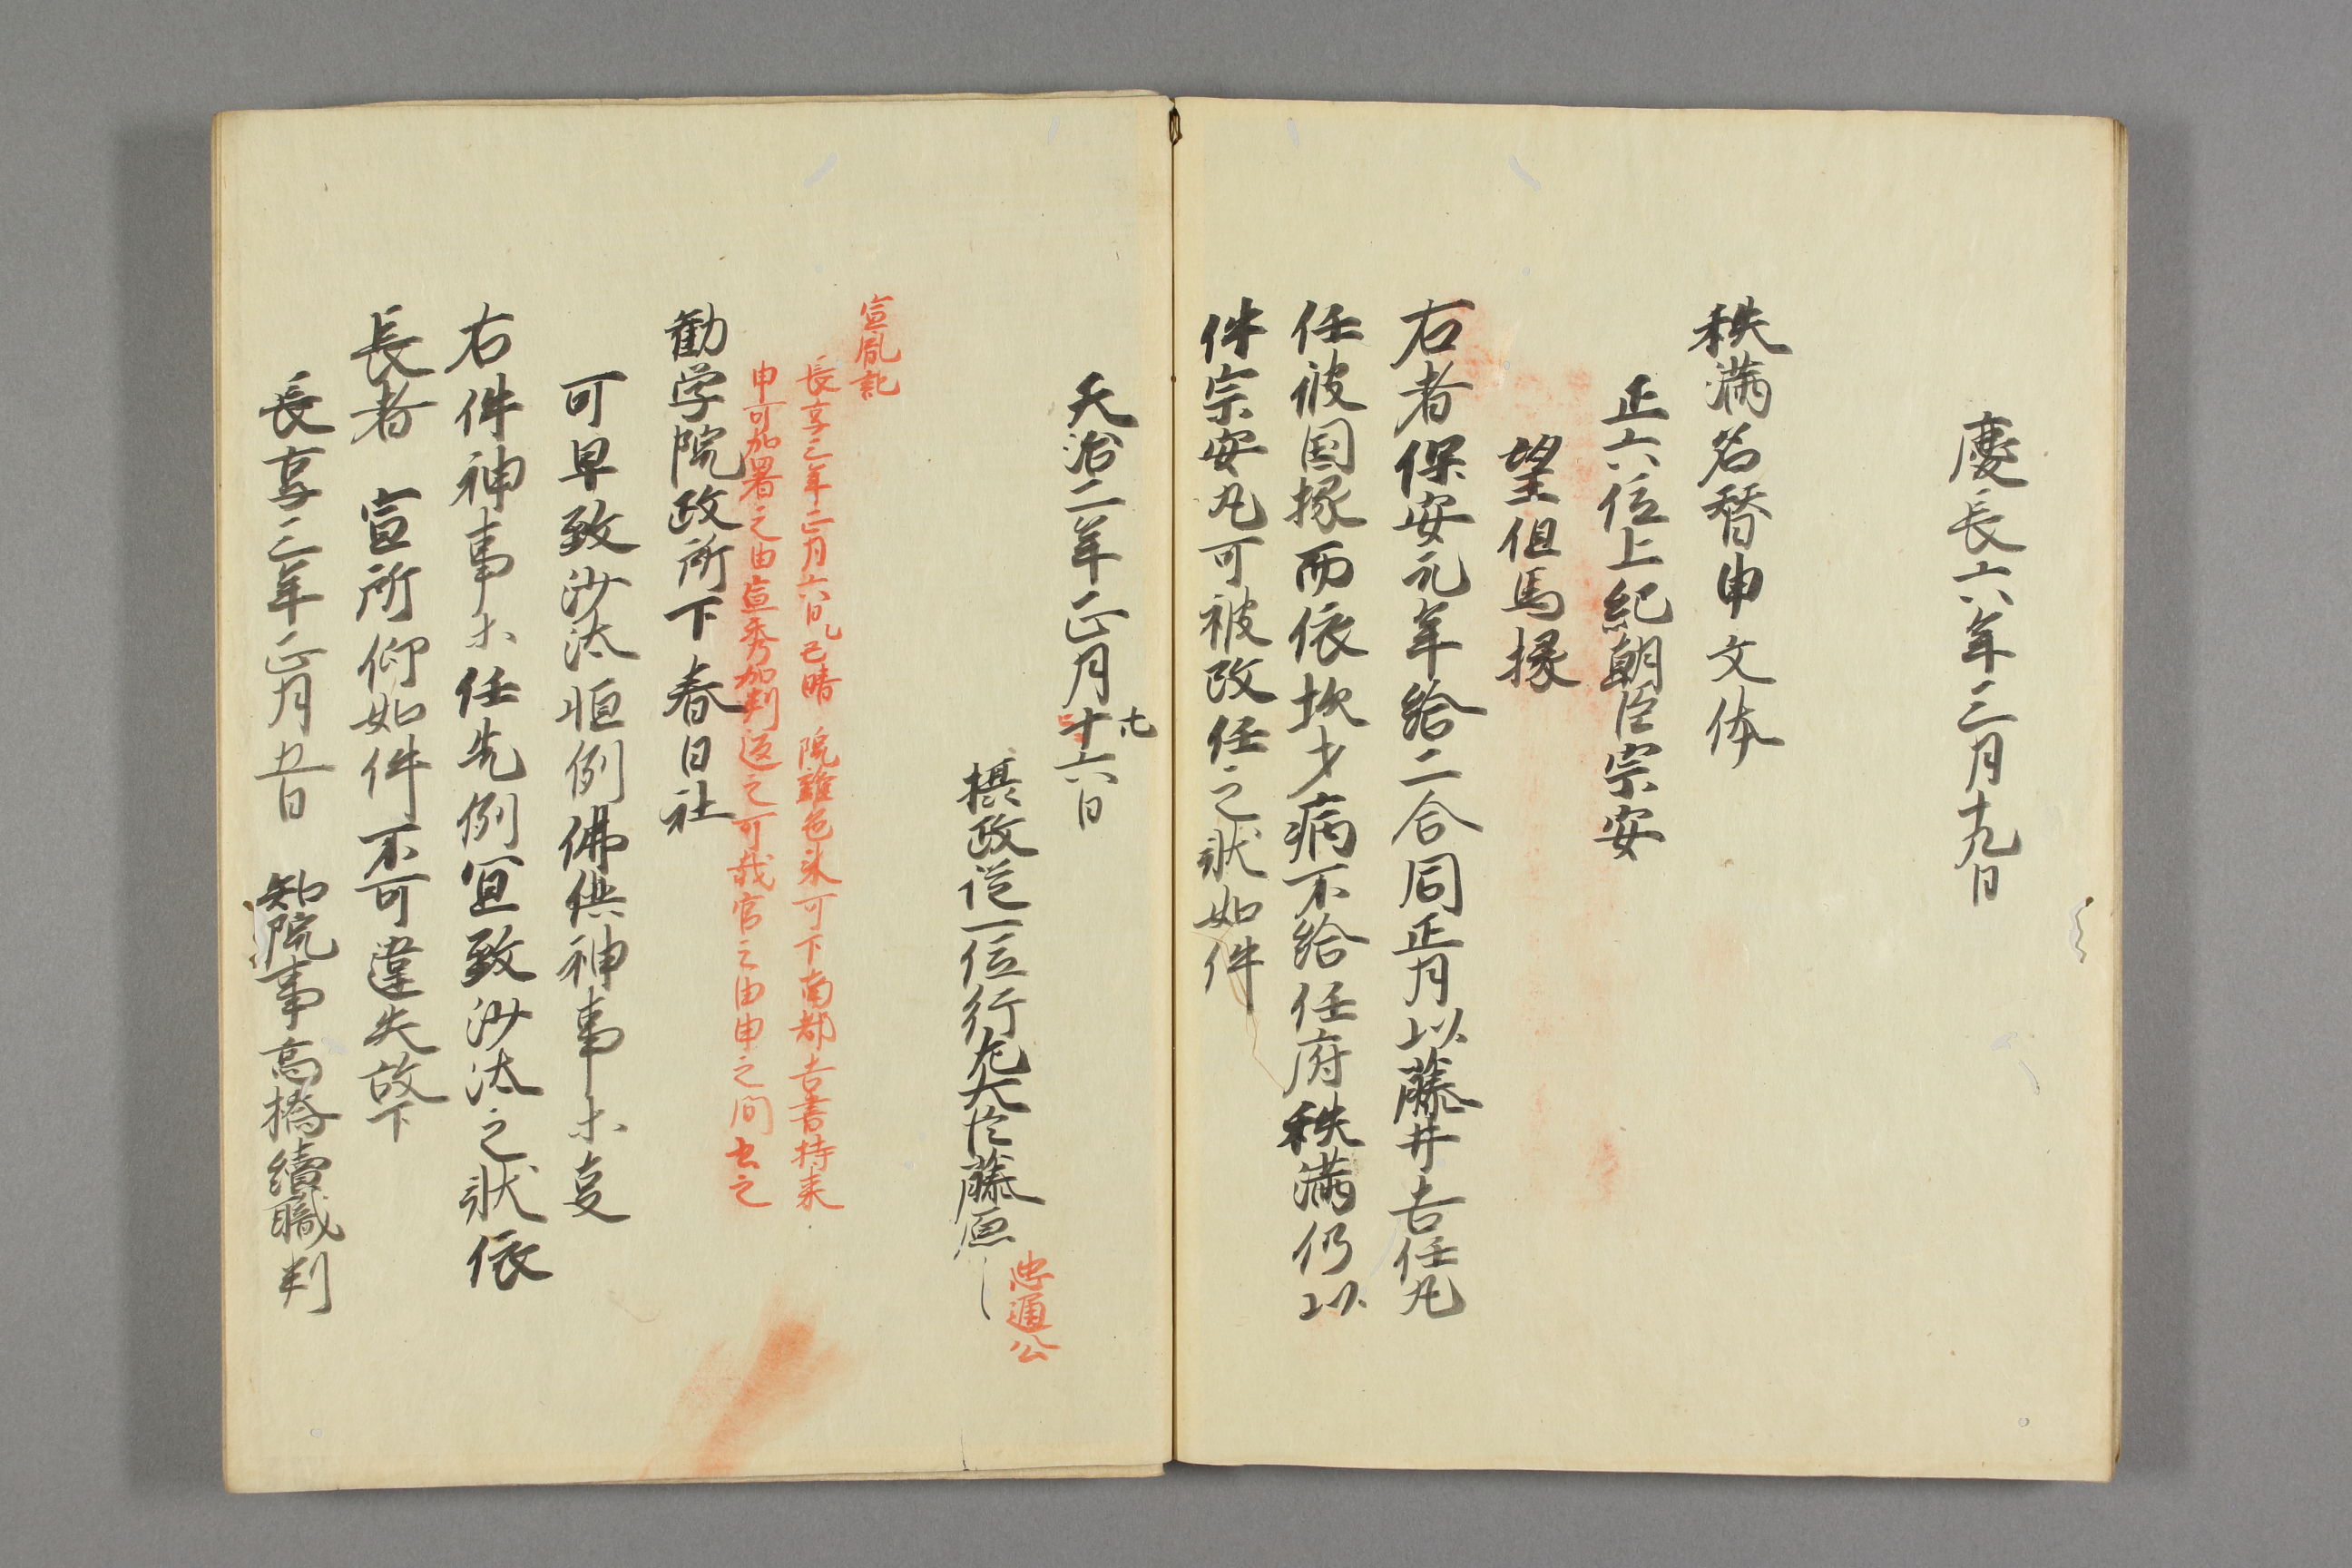 慶長六年三月十九日
秩満名替申文体
正六位上紀朝臣宗安
望但馬掾
右者保安元年給二合同正月以藤井吉任丸
任彼国掾而依坎少病不給任府秩満仍以
件宗安丸可被改任之状如件
天治二年正月十六日
十七
摂政従一位行左大臣藤原
忠通公
宣胤記
長享三年正月六日己晴 院雑色来可下南都吉書持来
申可加署之由宣秀加判返之可哉官之由申之間書之
勧学院政所下春日社
可早致沙汰恒例佛供神事等事
右件神事等任先例宜致沙汰之状依
長者 宣所仰如件不可違失故下
長享三年正月五日 知院事高橋續職判